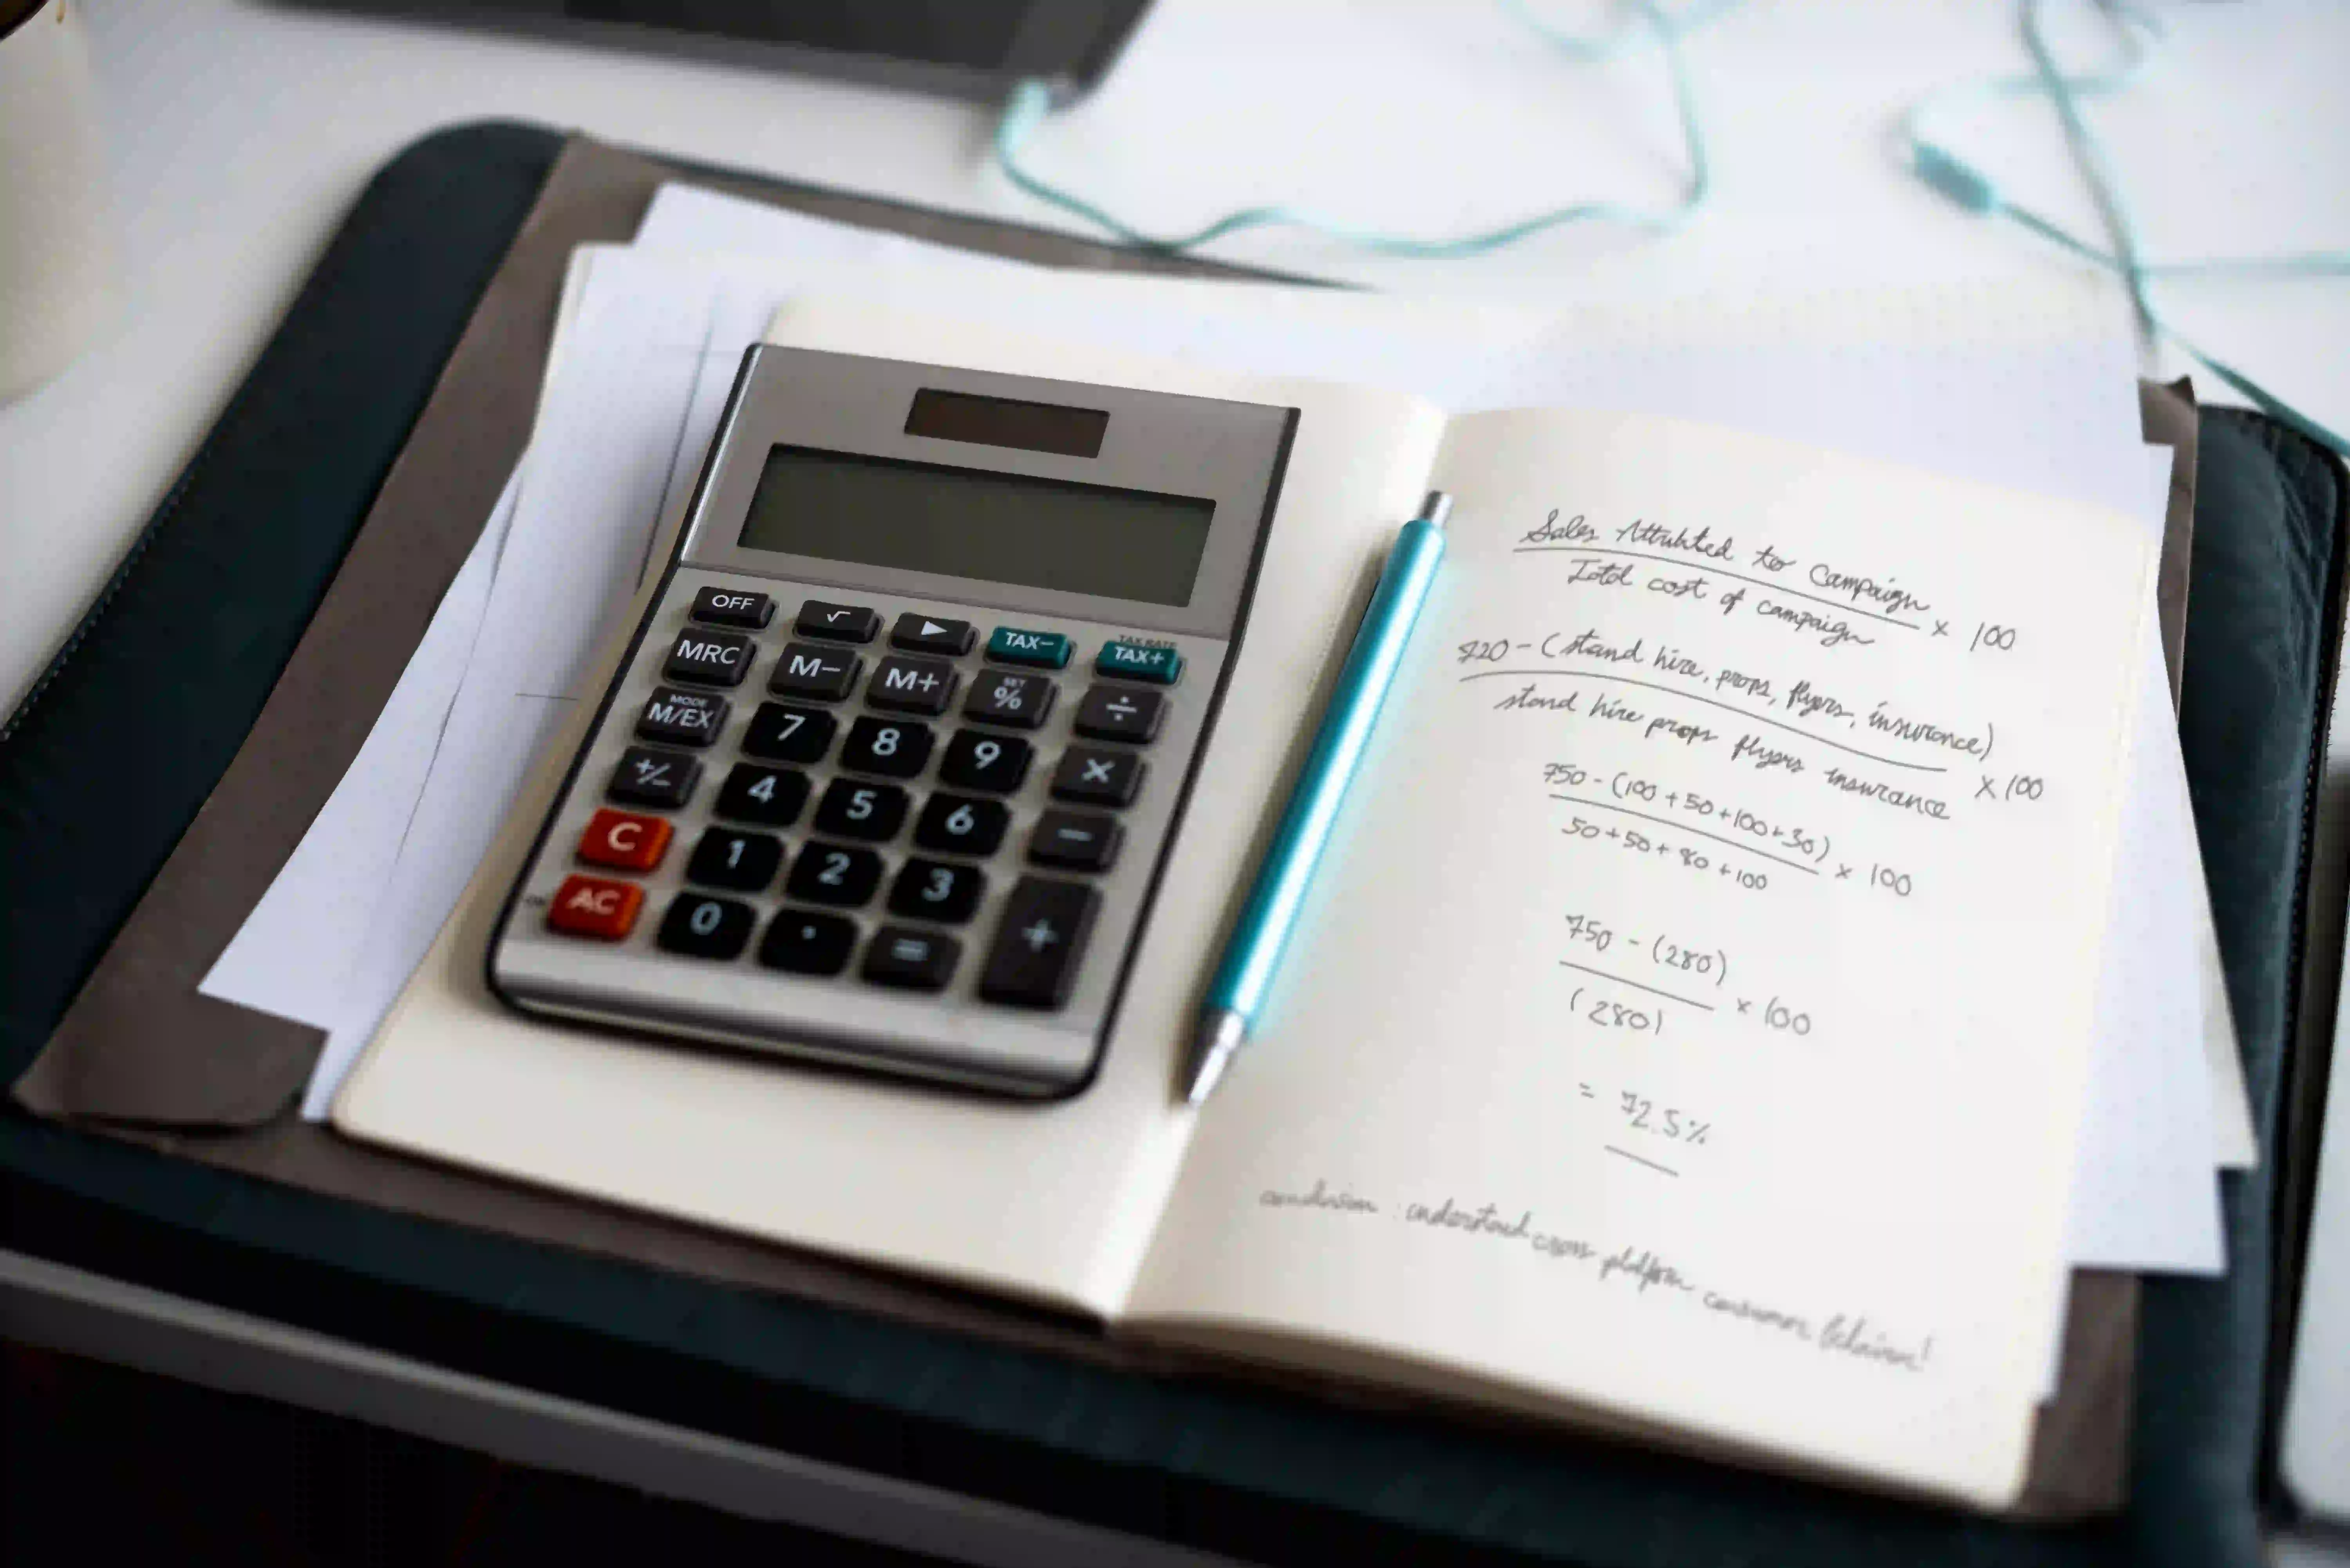 OFF √ ▶ TAX− TAX RATE TAX+
MRC M− M+ SET % ÷
MODE M/EX 7 8 9 ×
+/− 4 5 6 −
C 1 2 3 +
AC 0 . =
Sales Attributed to Campaign
Total cost of campaign
× 100
720 - (stand hire, props, flyers, insurance)
stand hire props flyers insurance
× 100
750 - (100 + 50 + 100 + 30)
50 + 50 + 80 + 100
× 100
750 - (280)
(280)
× 100
= 72.5%
conclusion : understand cross platform consumer behavior!